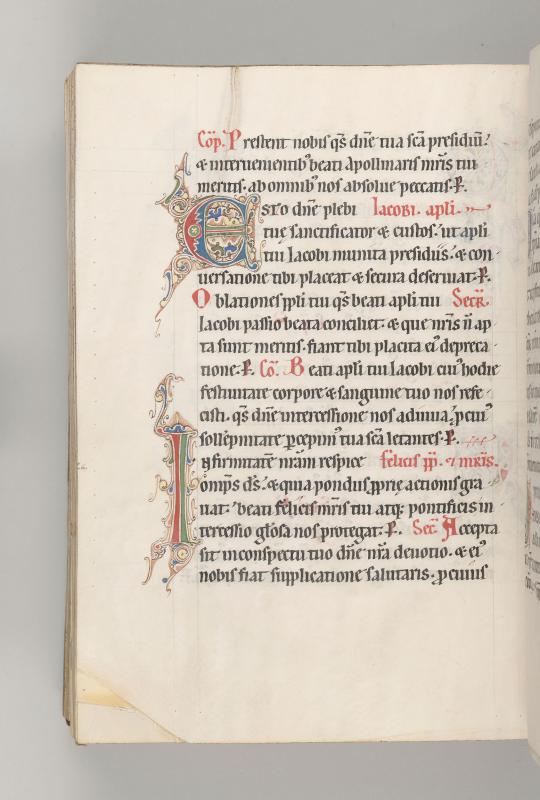 Co͞p. Prestent nobis q̄s dn̄e tua sc̄a presidiū.
& interuenientib; beati Apollinaris mr̄is tui
meritis. ab omnib; nos absolue peccatis. P.
Esto dn̄e plebi Iacobi. apl̄i.
tuę sanctificator & custos. ut apl̄i
tui Iacobi munita presidiis. & con
uersatione tibi placeat & secura deseruiat. P.
Oblationes ppl̄i tui q̄s beati apl̄i tui Secr̄.
Iacobi passio beata conciliet. & que nr̄is n̄ ap
ta sunt meritis. fiant tibi placita ei' depreca
tione. P. Co͞. Beati apl̄i tui Iacobi cui' hodie
festiuitate corpore & sanguine tuo nos refe
cisti. q̄s dn̄e intercessione nos adiuua. p̱ cui'
sollēpnitate p̱cepim' tua sc̄a letantes. P.
Infirmitatē nr̄am respice felicis pp̄. & mr̄is.
om̄ps d̄s. & quia pondus ꝓprię actionis gra
uat. beati felicis mr̄is tui atq; pontificis in
tercessio gl̄osa nos protegat. P. Secr̄. Accepta
sit in conspectu tuo dn̄e nr̄a deuotio. & ei'
nobis fiat supplicatione salutaris. ꝓ cuius